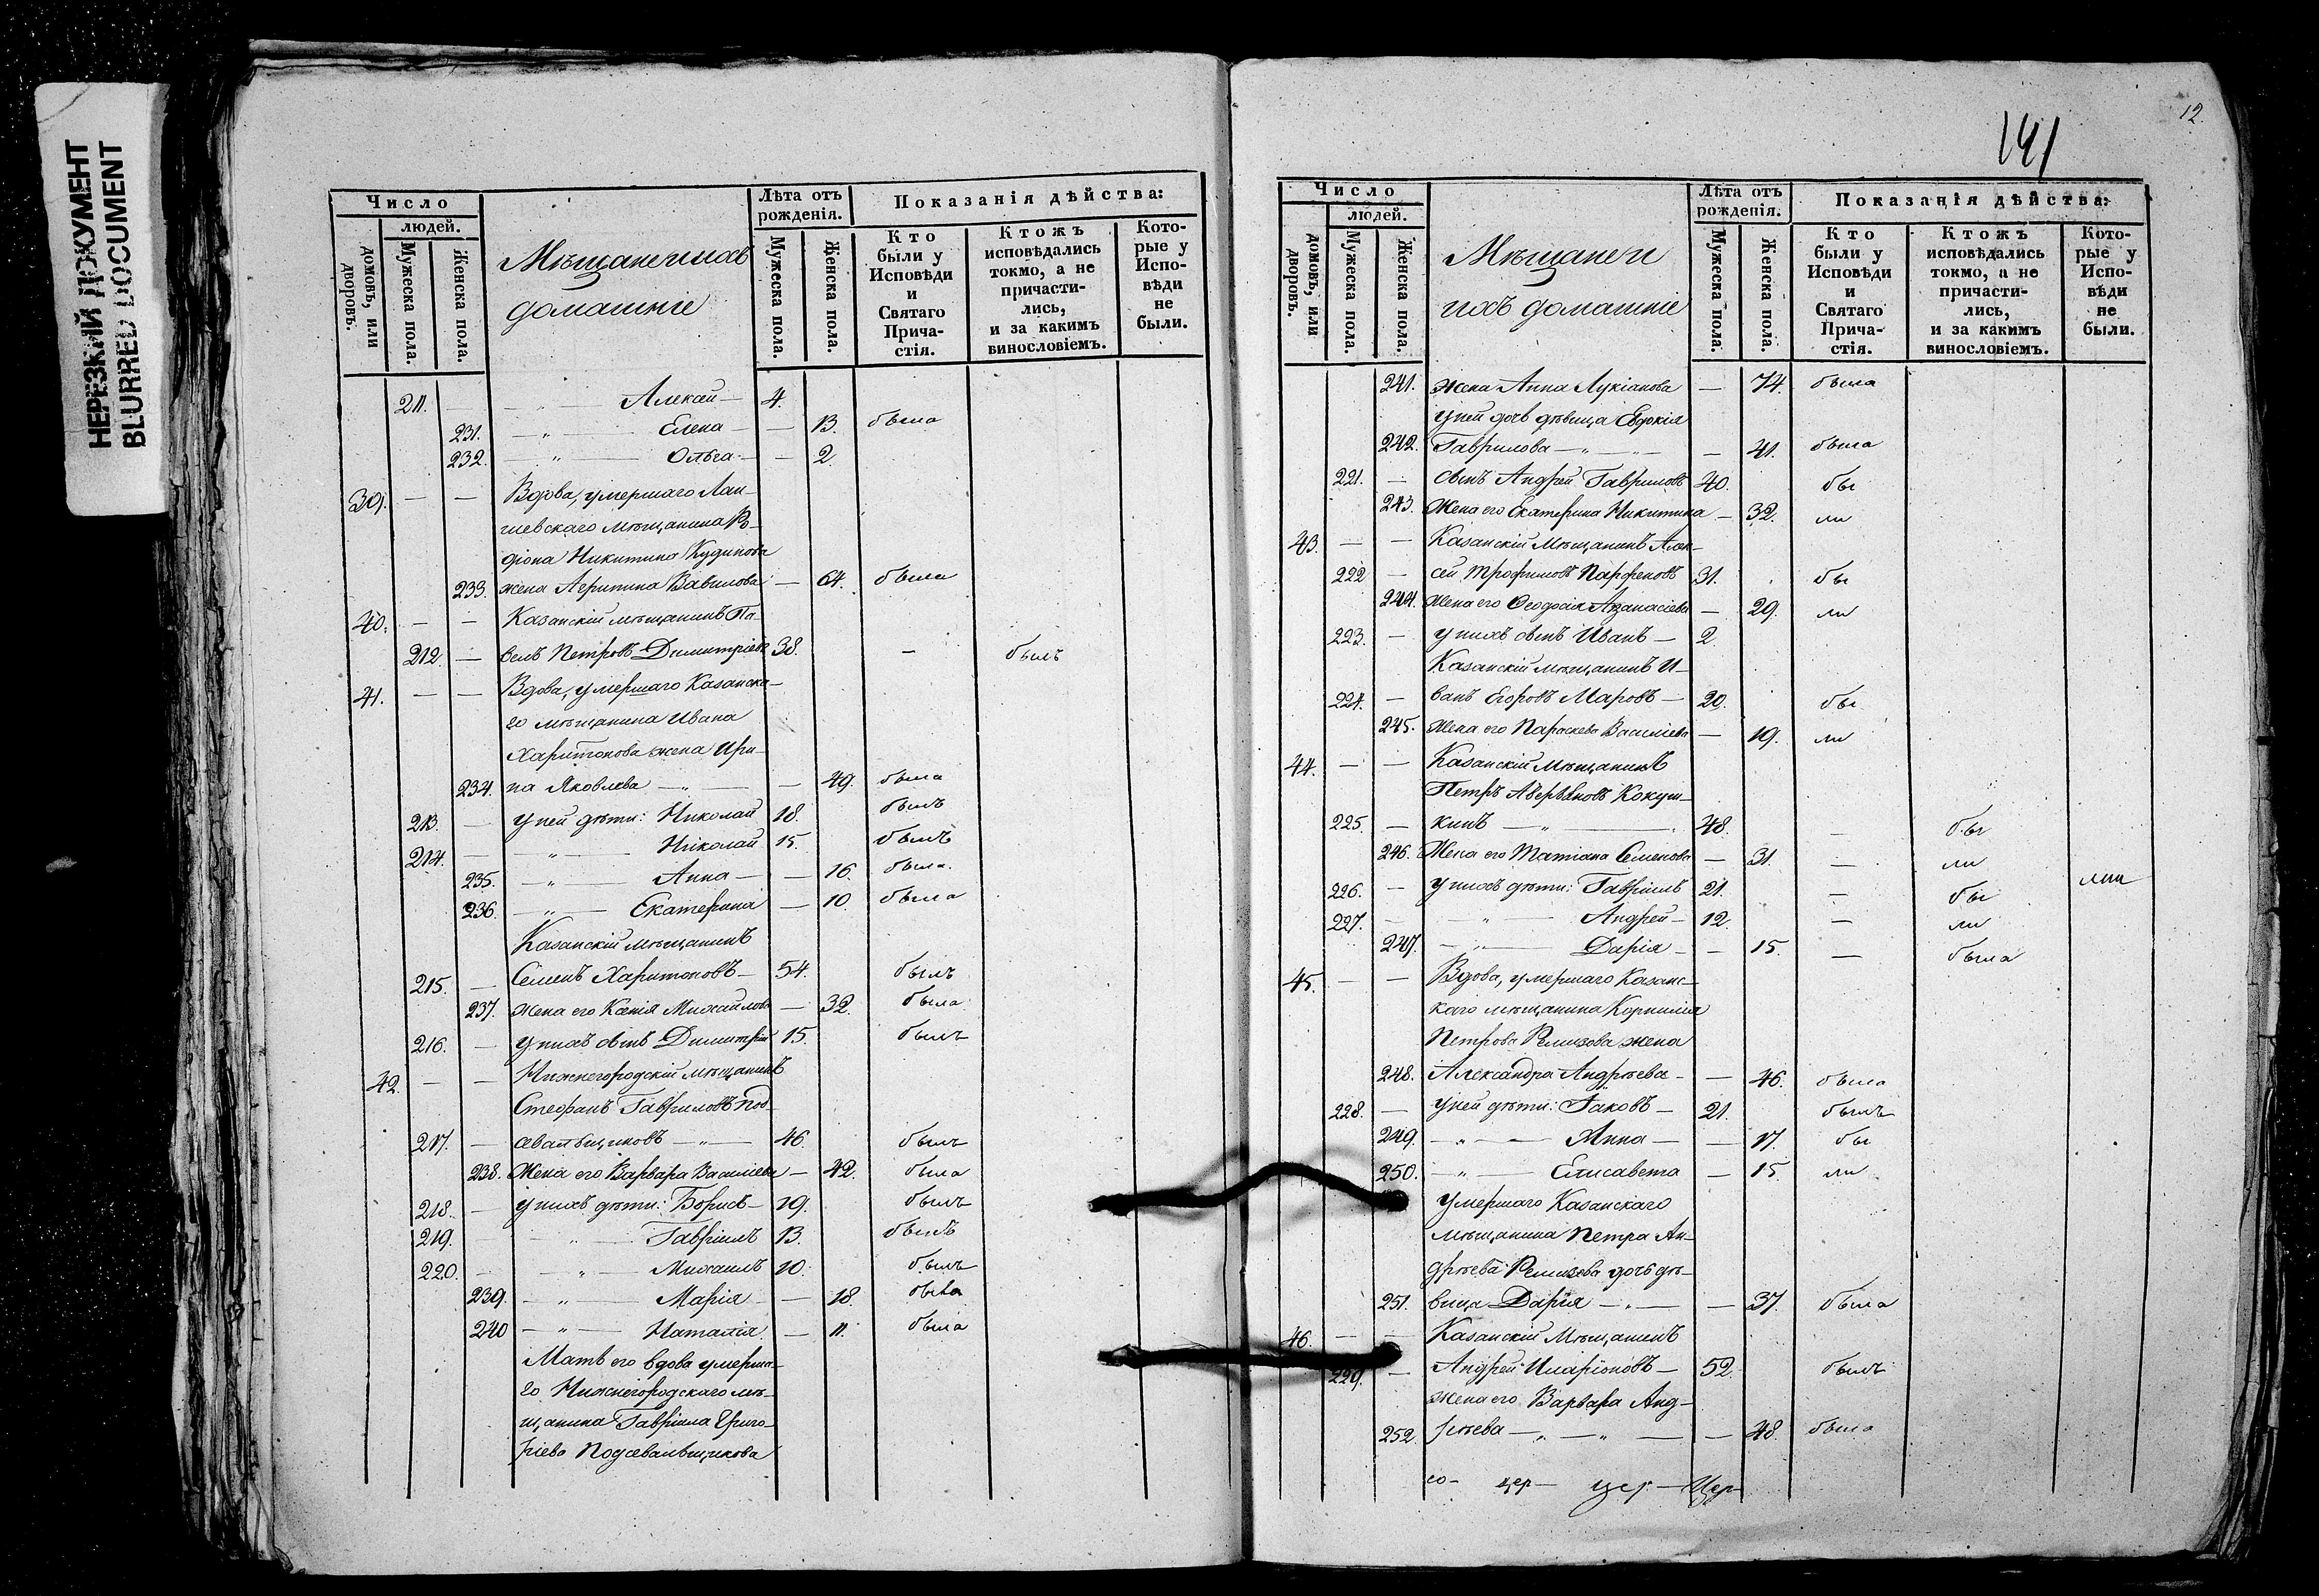 НЕРЕЗКИЙ ДОКУМЕНТ
BLURRED DOCUMENT
Число
людей.
домовъ, или дворовъ.
Мужеска пола.
Женска пола.
Мѣщане и ихъ
домашніе
Лѣта отъ рожденія.
Мужеска пола.
Женска пола.
Показанія дѣйства:
Кто были у Исповѣди и Святаго Прича-стія.
Ктожъ исповѣдались токмо, а не причасти-лись, и за какимъ винословіемъ.
Кото-рые у Испо-вѣди не были.
211. — — „ — Алексѣй — 4.
231. — „ — Елена — — 13. была
232. — „ — Ольга — — 2.
39. — — Вдова, умершаго Лаи-
шевскаго мѣщанина Ро-
діона Никитина Кудинова
233. жена Агрипина Вавилова — 64. была
40. — — Казанскій мѣщанинъ Па-
212. — велъ Петровъ Димитріевъ 38. — былъ
41. — — Вдова, умершаго Казанска-
го мѣщанина Ивана
Харитонова жена Ири-
234. на Яковлева — „ — — 49. была
213. — у ней дѣти: Николай 18. былъ
214. — — „ — Николай 15. былъ
235. — „ — Анна — — 16. была.
236. — „ — Екатерина — 10. была
Казанскій мѣщанинъ
215. — Семенъ Харитоновъ — 54. былъ
237. жена его Ксенія Михаилова — 32. была
216. — у нихъ сынъ Димитрій 15. былъ
42. — — Нижнегородскій мѣщанинъ
Стефанъ Гавриловъ Под-
217. — севальщиковъ — „ — 46. былъ
238. Жена его Варвара Василіева — 42. была
218. — у нихъ дѣти: Борисъ — 19. былъ
219. — — „ — Гавріилъ 13. былъ
220. — — „ — Михаилъ 10. былъ
239. — „ — Марія — — 18. была
240 — „ — Наталія. — 11. была
Мать его вдова умерша-
го Нижнегородскаго мѣ-
щанина Гавріила Григо-
ріева Подсевальщикова
12.
141
Число
людей.
домовъ, или дворовъ.
Мужеска пола.
Женска пола.
Мѣщане и
ихъ домашніе
Лѣта отъ рожденія.
Мужеска пола.
Женска пола.
Показанія дѣйства:
Кто были у Исповѣди и Святаго Прича-стія.
Ктожъ исповѣдались токмо, а не причасти-лись, и за какимъ винословіемъ.
Кото-рые у Испо-вѣди не были.
241. жена Анна Лукіанова — 74. была
у ней дочь дѣвица Евдокія
242. Гаврилова — „ — „ — — 41. была
221. — сынъ Андрей Гавриловъ 40. бы
243. Жена его Екатерина Никитина — 32. ли
43. — — Казанскій Мѣщанинъ Алек-
222 — сѣй Трофимовъ Парфеновъ 31. бы
244. Жена его Ѳеодосія Аѳанасіева — 29. ли
223. — у нихъ сынъ Иванъ — 2
Казанскій мѣщанинъ И-
224. — ванъ Егоровъ Маровъ — 20. бы
245. Жена его Параскева Василіева — 19. ли
44. — — Казанскій Мѣщанинъ
Петръ Аверьяновъ Кокуш-
225. — кинъ — „ — 48. — бы
246. Жена его Татіана Семенова — 31. — ли
226. — у нихъ дѣти: Гавріилъ 21. — бы
227. — — „ — Андрей — 12. — ли
247. — „ — Дарія — — 15. — была
45. — — Вдова, умершаго Казанс-
каго мѣщанина Корнилія
Петрова Ремизова жена
248. Александра Андрѣева — — 46. была
228. — у ней дѣти: Іаковъ — 21. былъ
249. — „ — Анна — — 17. бы
250. — „ — Елисавета — 15. ли
умершаго Казанскаго
мѣщанина Петра Ан-
дрѣева Ремизова дочь дѣ-
251. вица Дарія — „ — — 37. была
46. — — Казанскій Мѣщанинъ
229. — Андрей Иларіоновъ — 52. былъ
жена его Варвара Анд-
252. рѣева — „ — „ — — 48. была